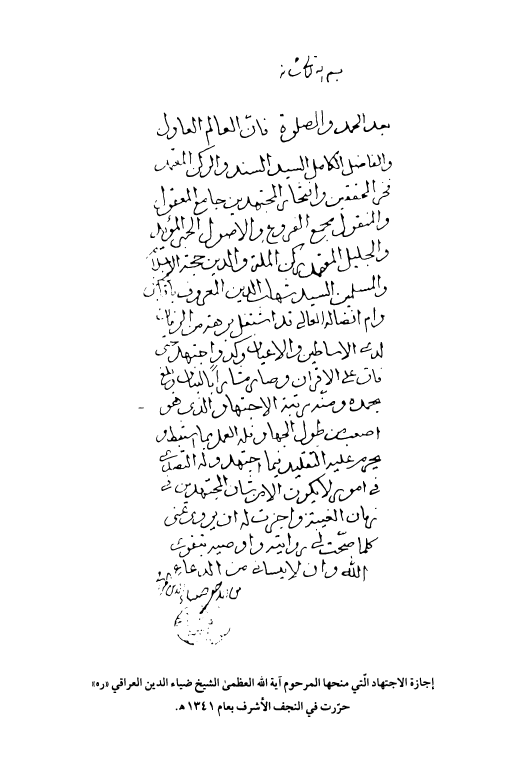 بسم الله تعالى شأنه
بعد الحمد والصلوة فان العالم العادل
والفاضل الكامل السيد السند والركن المعتمد
فخر المحققين وافتخار المجتهدين جامع المعقول
والمنقول مجمع الفروع والاصول الحبر المؤيد
والجليل المعتمد ركن الملة والدين حجة الاسلام
والمسلمين السيد شهاب الدين المعروف
دام افضاله العالي قد اشتغل برهة من الزمان
لدى الاساطين والاعيان وكد واجتهد حتى
فاق على الاقران وصار مشارا بالبنان وبلغ
بحمده ومنّه رتبة الاجتهاد الذي هو
اصعب من طول الجهاد فله العمل بما استنبط و
يحرم عليه التقليد فيما اجتهد وله التصدي
في امور لا يكون الا من شان المجتهدين في
زمان الغيبة واجزت له ان يروي عني
كلما صحّت لي روايته واوصيه بتقوى
الله وان لا ينساني من الدعاء
ضياء الدين
إجازة الاجتهاد الّتي منحها المرحوم آية الله العظمىٰ الشيخ ضياء الدين العراقي «ره»
حرّرت في النجف الأشرف بعام ١٣٤١ هـ.